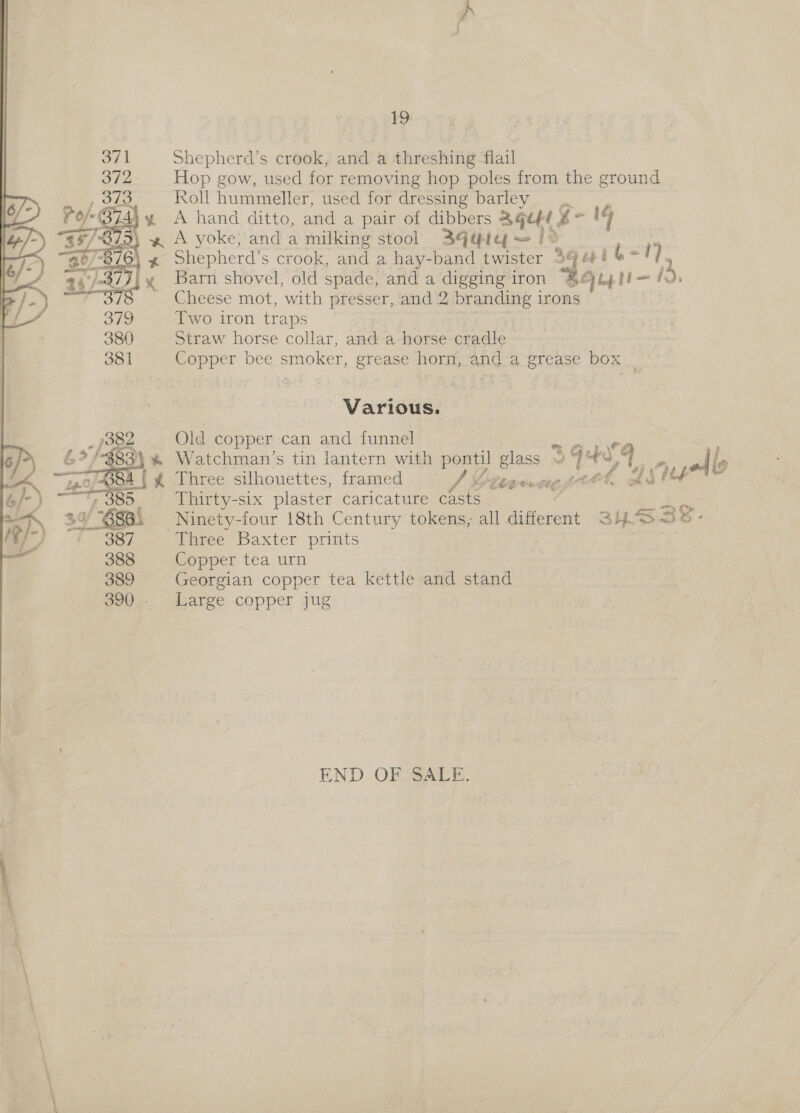 19
371 Shepherd's crook, and a threshing flail
372 Hop gow, used for removing hop poles from the ground
373 Roll hummeller, used for dressing barley
374 A hand ditto, and a pair of dibbers
375 A yoke, and a milking stool
376 Shepherd's crook, and a hay-band twister
377 Barn shovel, old spade, and a digging iron
378 Cheese mot, with presser, and 2 branding irons
379 Two iron traps
380 Straw horse collar, and a horse cradle
381 Copper bee smoker, grease horn, and a grease box
Various.
382 Old copper can and funnel
383 Watchman's tin lantern with pontil glass
384 Three silhouettes, framed
385 Thirty-six plaster caricature casts
386 Ninety-four 18th Century tokens, all different
387 Three Baxter prints
388 Copper tea urn
389 Georgian copper tea kettle and stand
390 Large copper jug
END OF SALE.